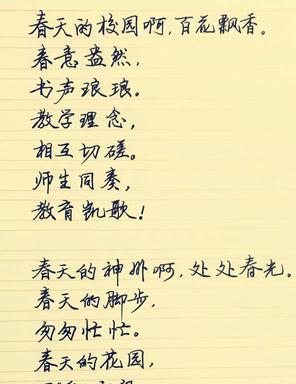 春天的校园啊,百花飘香。
春意盎然,
书声琅琅。
教学理念,
相互切磋。
师生同奏,
教育凯歌!
春天的神州啊,处处春光。
春天的脚步,
匆匆忙忙。
春天的花园,